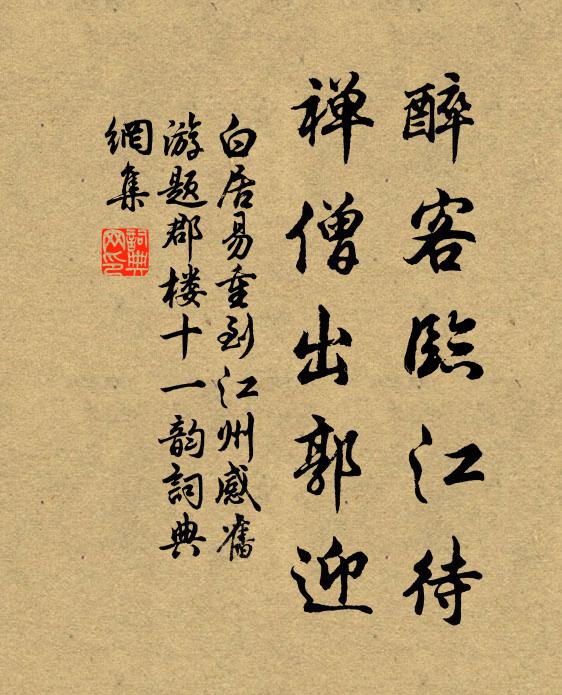 醉客臨江待
禅僧出郭迎
白居易重到江州感舊
游题郡楼十一韵詞典
網集
詞典
网印